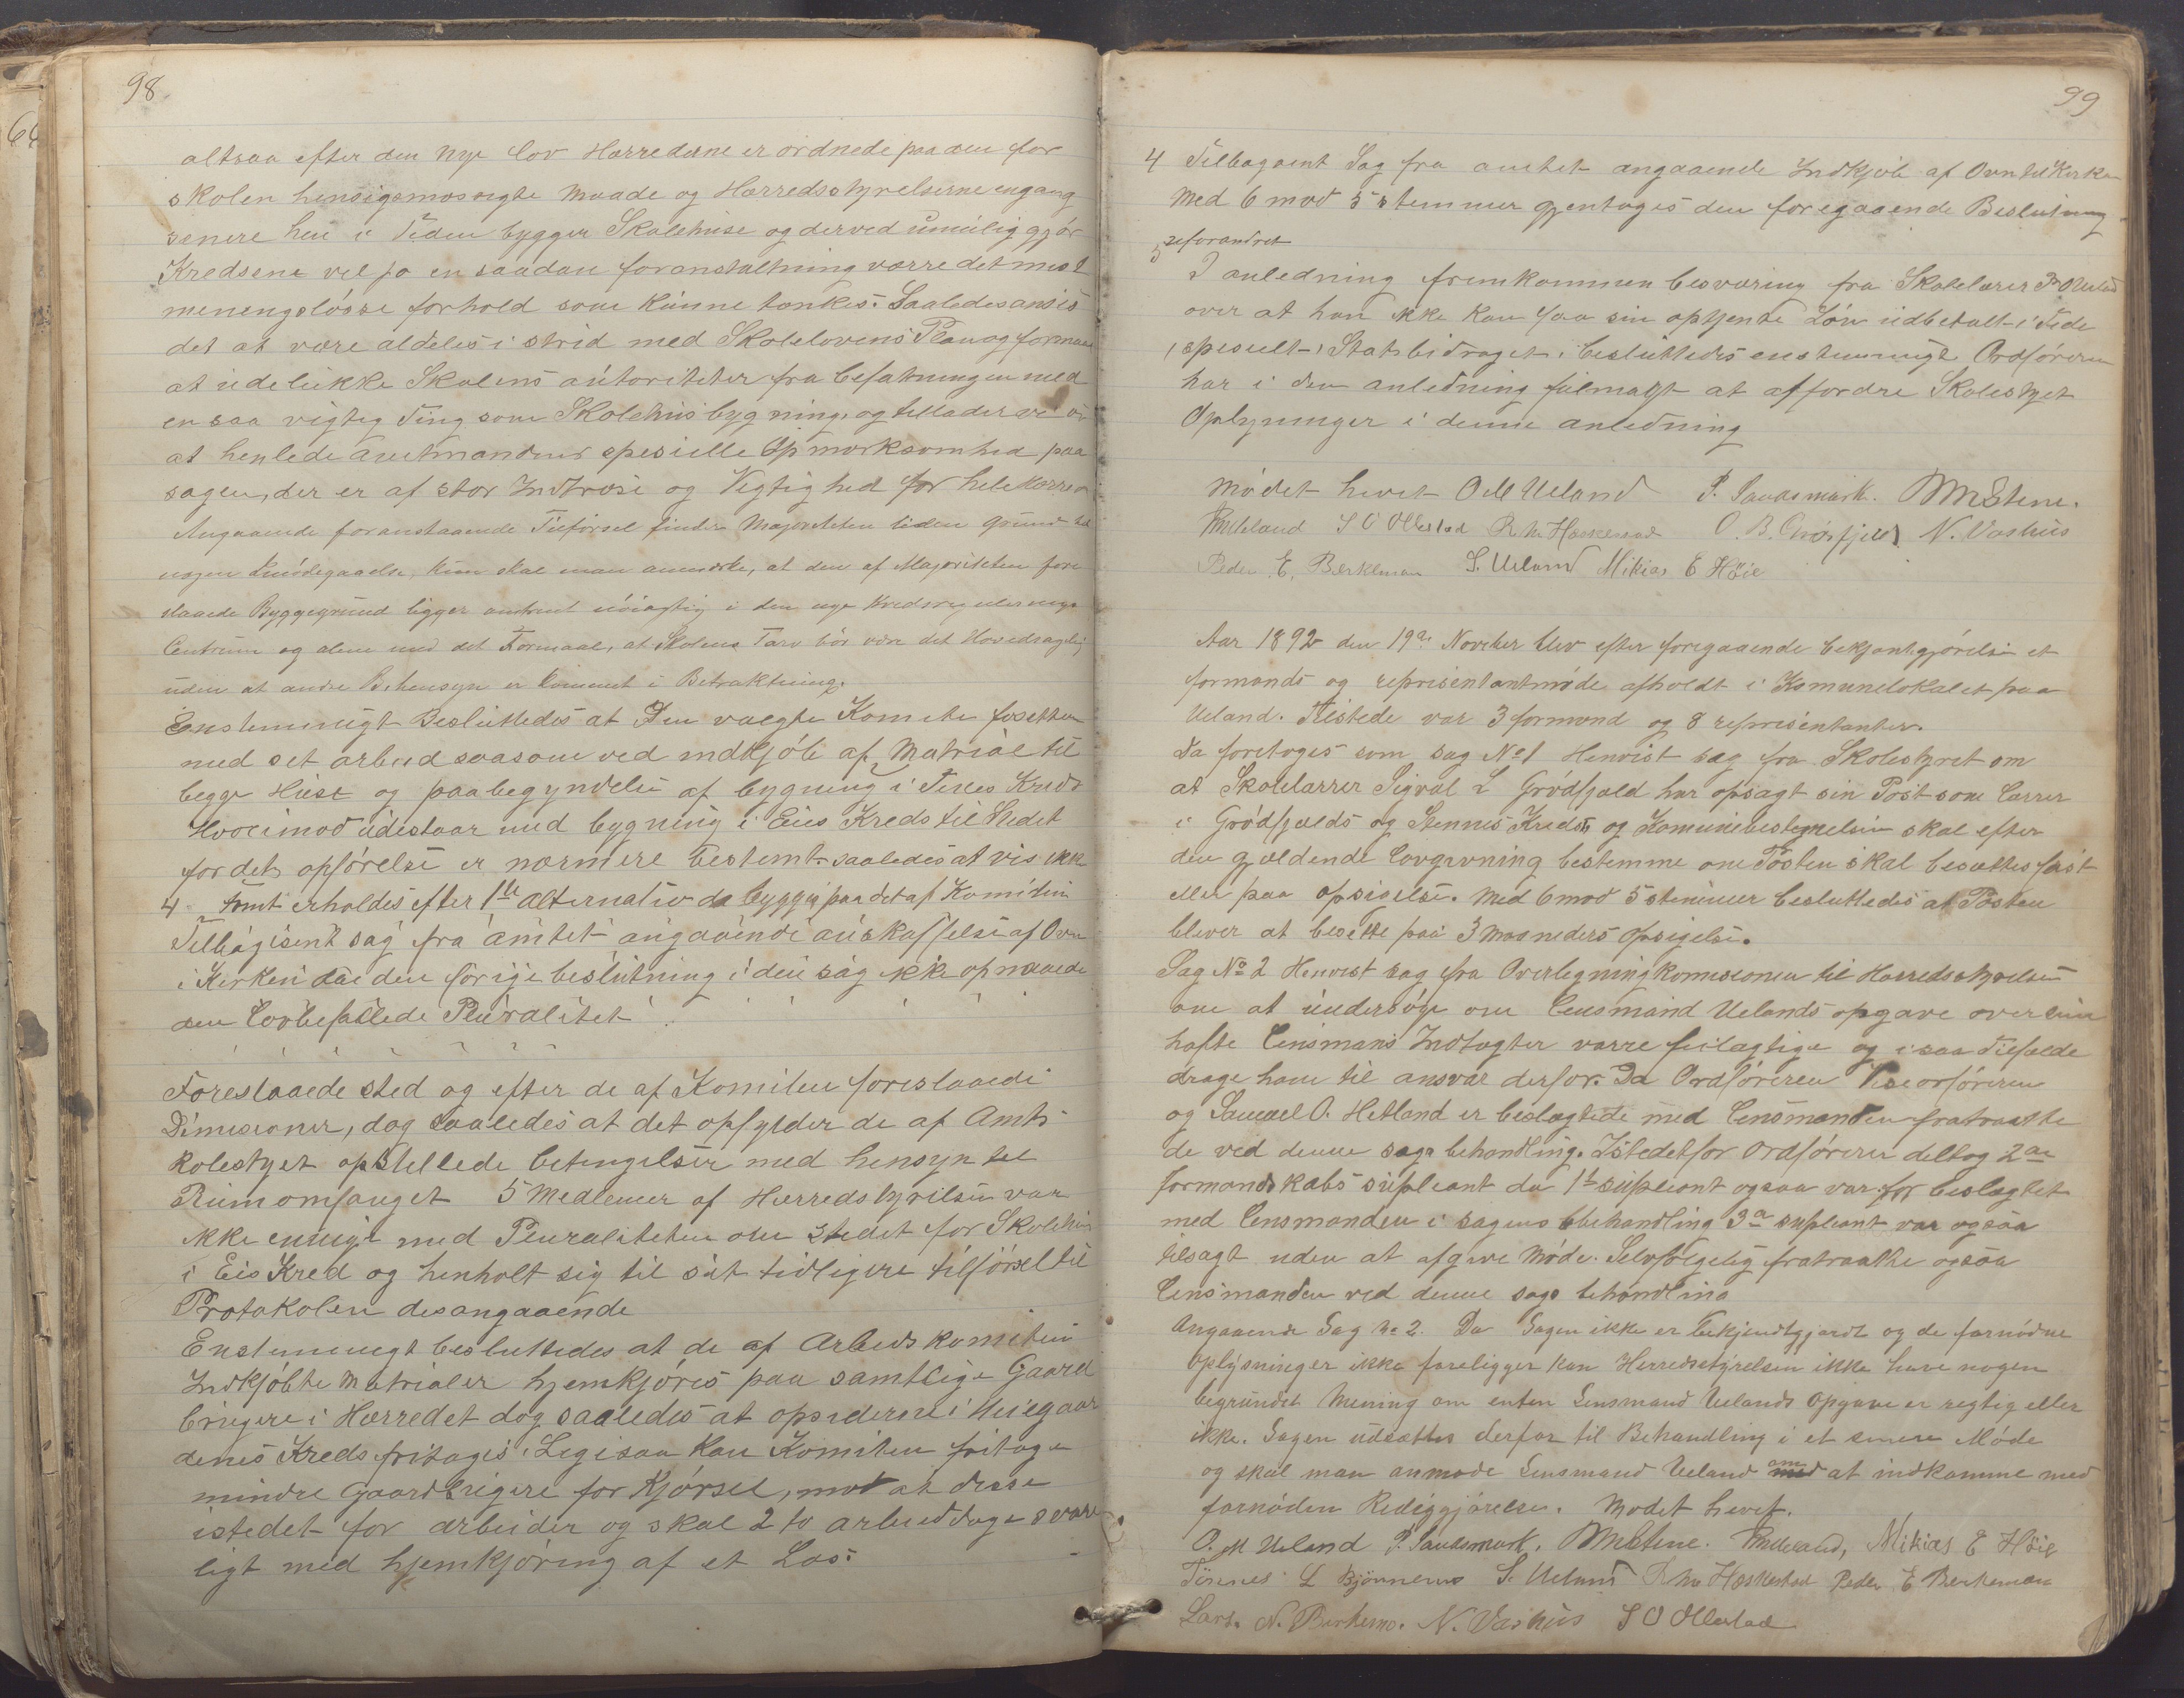 98
altsaa efter den nye lov Harrederne er ordnede paa den for
skolen hensigsmæsigste Maade og Harredsstyrelserne engang
senere hen i Tiden bygger Skolehuse og derved umulig gjør
Kredsene vel jo en saadan foranstaltning værre det mest
menengsløsse forhold som kunne tænkes. Saaledes ansees
det at være aldeles i strid med Skolelovens Plan og formaal
at udelukke Skolens autoriteter fra befatningen med
en saa vigtig Ting som Skolehus bygning, og tillader vi os
at henlede Amtmandens spesielle Opmærksomhed paa
sagen, der er af stor Indtræse og Vigtighed for hele Harred
Angaaende foranstaaende Tilførsel finder Majoriteten liden Grund til
nogen Imødegaaelse, kun skal man anmærke, at den af Majoriteten fore
slaaede Byggegrund ligger omtrent nøiagtig i den nye Kredsregulerings
Centrum og alene med det Formaal, at Skolens Tarv bør være det Hovedsagelig
uden at andre Bihensyn er kommet i Betraktning.
Enstemmigt Besluttedes at Den valgte Komite fosetter
med set arbeid saasom ved indkjøb af Matrial til
begge Huse og paabegyndelse af bygning i Kreds
Hvorimod udestaar med bygning i Eies Kreds til Stedet
for dets opførelse er nærmere bestemt saaledes at vis ikke
4 Tomt erholdes efter 1te alternativ da bygges paa det af Komiteen
Tilbagesent sag fra amtet angaaende anskaffelse af Ovn
i Kirken da den forige beslutning i den sag ikke opnaaede
den lovbefallede Pluralitet
Foreslaaede sted og efter de af Komiteen foreslaaede
Dimesioner, dog saaledes at det opfylder de af Amts
kolestyet opstillede betingelser med hensyn til
Rumomfanget 5 Medlemer af Harredstyrelsen var
ikke enige med Pluraliteten om Stedet for Skolehus
i Eis Kred og henholt sig til sit tidligere tilførsel til
Protokolen desangaaende
Enstemmegt besluttedes at de af Arbeds komiteen
Indkjøbte Matrialer hjemkjøres paa samtlige Gaard
brugere i Harredet dog saaledes at opsiderne i
denes Kreds fritages. Legesaa kan Komiteen fritage
mindre Gaardbrugere for Kjørsel, mot at disse
istedet for arbeider og skal 2 to arbeiddage svare
ligt med hjemkjøring af et Læs.
99
4 Tilbagsent Sag fra amtet angaaende Indkjøb af Ovn til Kirken
Med 6 mod 5 stemmer gjentages den foregaaende Beslutning
uforandret
5 I anledning fremkommen besværing fra Skolelærer P O Ueland
over at han ikke kan faa sin optjente Løn udbetalt i Tide
spesielt Statsbidraget, besluttedes enstemmigt Ordføreren
har i den anledning fulmagt at affordre Skolestyet
Oplysninger i denne anledning
Mødet hevet O M Ueland P. Sandsmark. Stene.
Ueland S O Ollestad R. M Haskestad O. B. Grøsfjeld N. Vashus
Peder E. Berkleman S. Ueland Mikias E Høie
Aar 1892 den 19de November blev efter foregaaende bekjentgjørelse et
formands og reprisentantmøde afholdt i Komunelokalet paa
Ueland. Tilstede var 3 formend og 8 reprisentanter.
Da foretoges som sag No 1 Henvist sag fra Skolestyret om
at Skolelærrer Sigval L Grødfjæld har opsagt sin Post som Lærrer
i Grødfjælds og Stennes Kreds, og Komunebestyrelsen skal efter
den gjeldende Lovgivning bestemme om Posten skal besættes fast
eller paa opsigelse. Med 6 mod 5 stemmer besluttedes at Posten
blever at besette paa 3 Maaneders opsigelse.
Sag No 2 Henvist sag fra Overlegningkomesionen til Harredsstyrelsen
om at undersøge om Lensmand Uelands opgave over sine
hafte Lensmans Indtægter varre feilagtige og i saa Tilfælde
drage ham til ansvar derfor. Da Ordføreren Viseorføreren
og Samuel O. Hetland er beslægtede med Lensmanden fratraatte
de ved denne sags behandling. Istedetfor Ordføreren deltog 2den
formandskabs supleant da 1ste supleant ogsaa var for beslægtet
med Lensmanden i sagens behandling 3de supleant var ogsaa
tilsagt uden at afgive Møde. Selvfølgelig fratraatte ogsaa
Lensmanden ved denne sags behandling
Angaaende Sag No 2. Da Sagen ikke er bekjendtgjordt og de fornødne
Oplysninger ikke foreligger kan Herredsstyrelsen ikke have nogen
begrundet Mening om enten Lensmand Uelands Opgave er regtig eller
ikke. Sagen udsættes derfor til Behandling i et senere Møde
og skal man anmode Lensmand Ueland om at indkomme med
fornøden Rediggjørelse. Mødet hevet.
O. M Ueland P. Sandsmark. Stene. Ueland, Mikias E Høie
Tønnes L Bjønnemo S. Ueland R. M Haskestad Peder E Berkeman
Lars. N. Birkemo. N. Vashus S O Ollestad